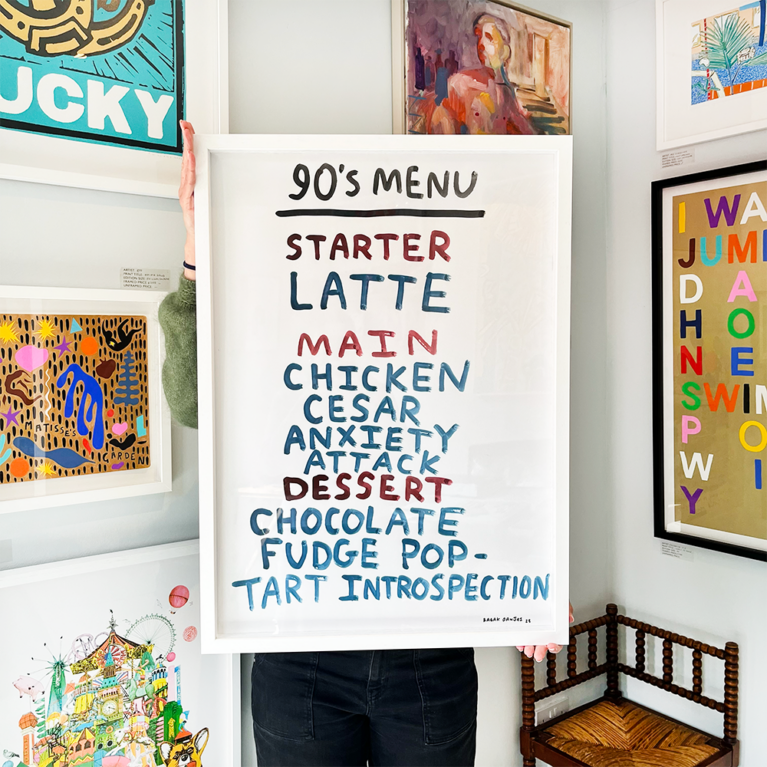 UCKY
90'S MENU
STARTER
LATTE
MAIN
CHICKEN
CESAR
ANXIETY
ATTACK
DESSERT
CHOCOLATE
FUDGE POP-
TART INTROSPECTION
MATISSE'S
GARDEN
I WA
JUM
D A
H O
N E
SWIM
P O
W I
Y